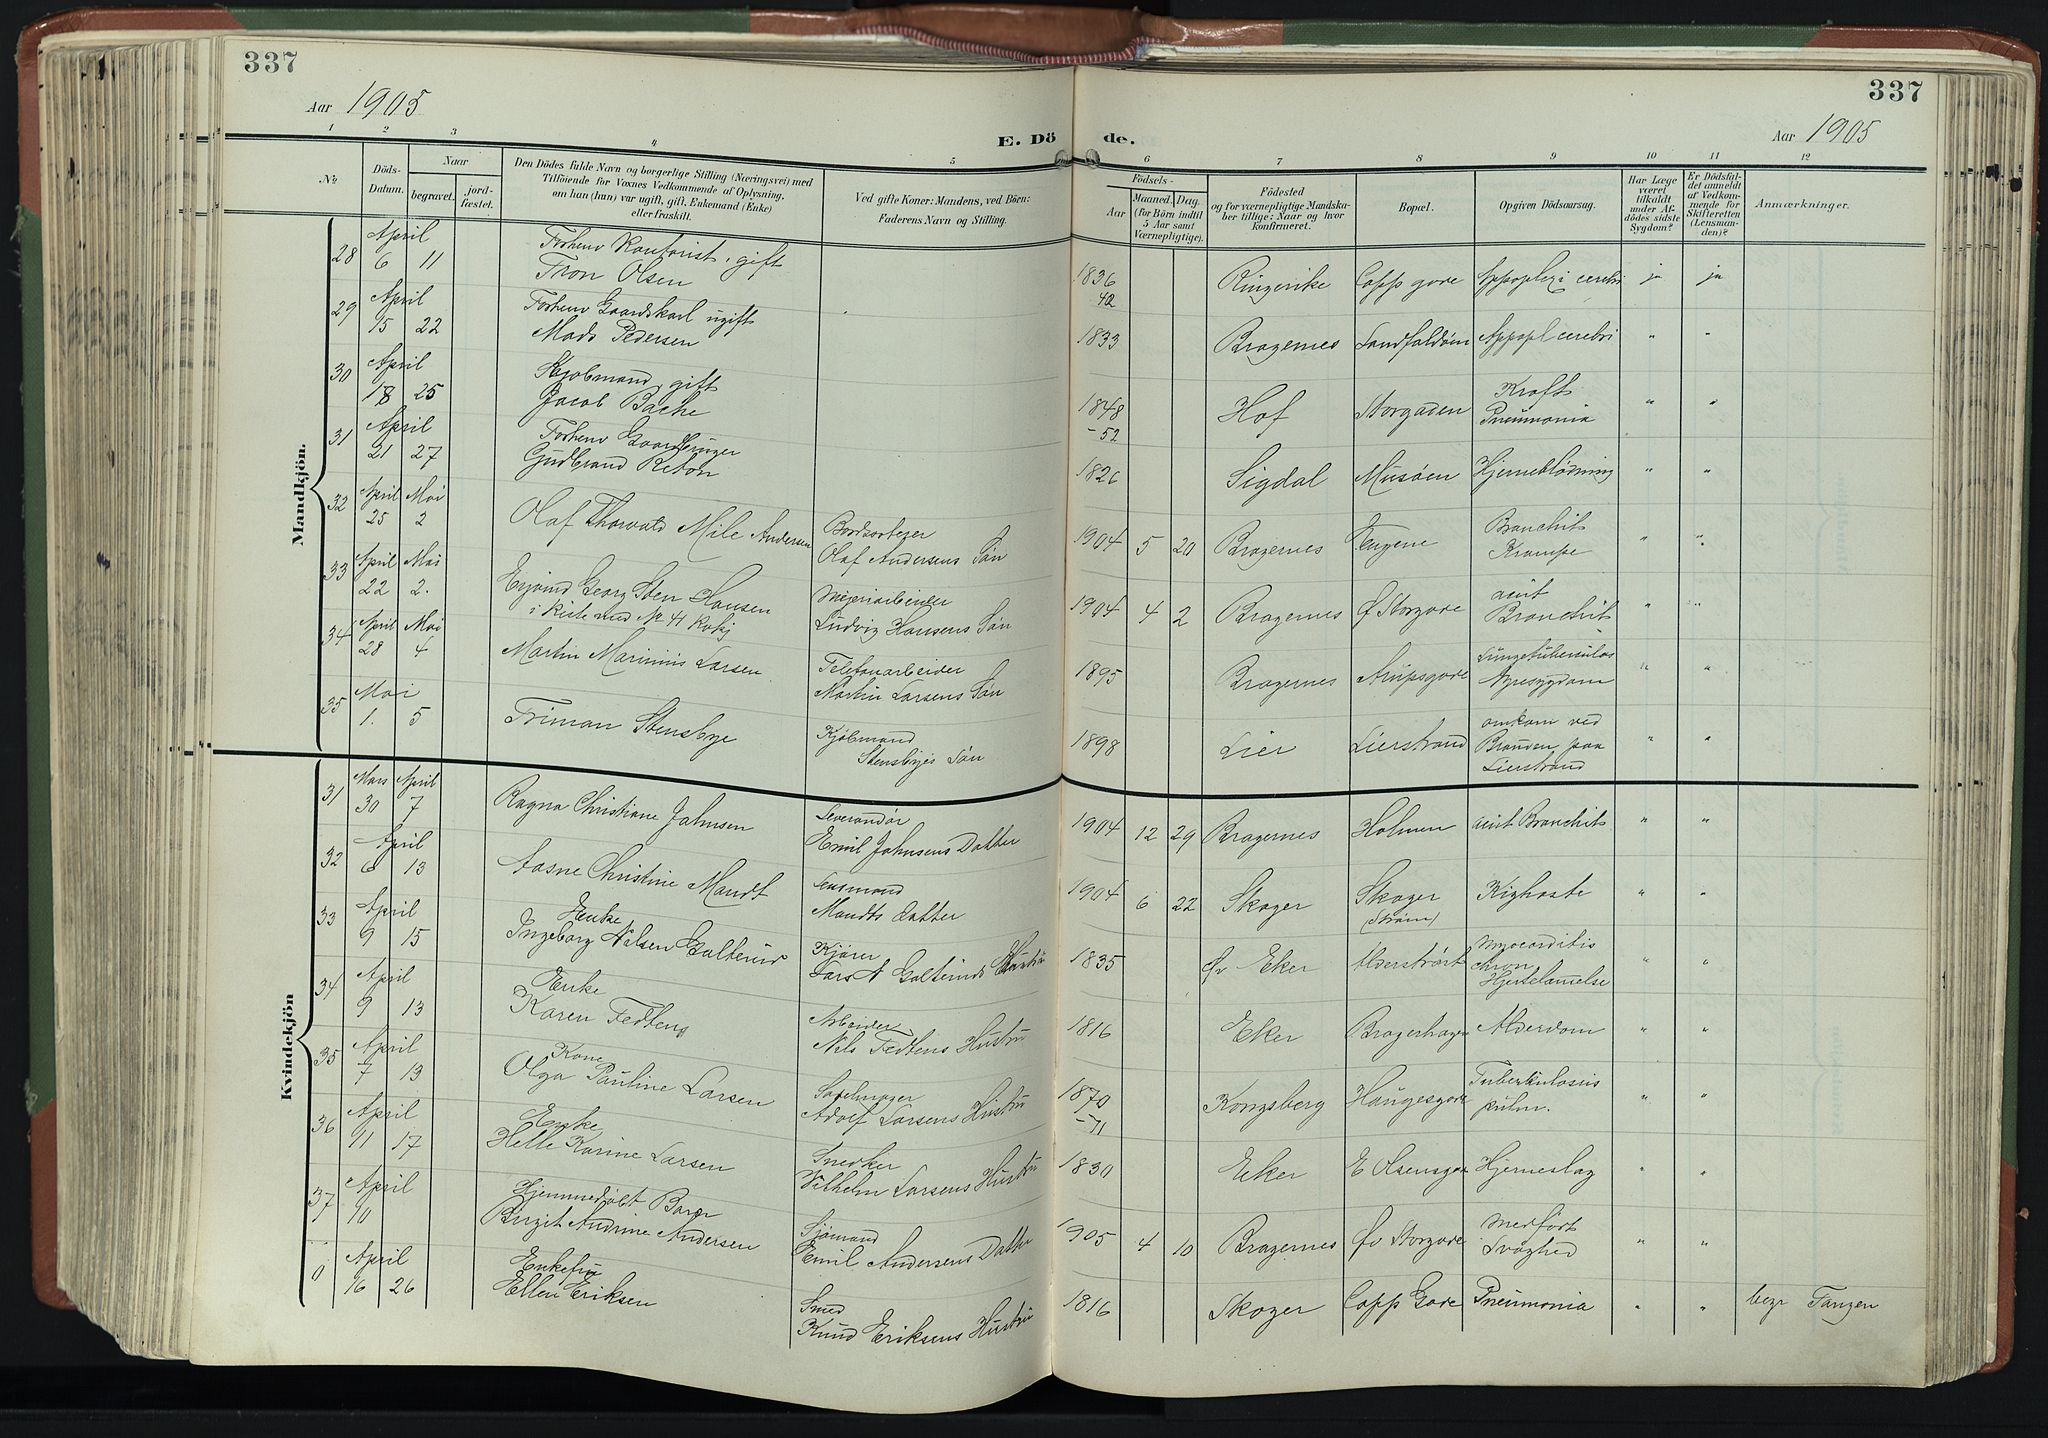 337
337
Aar 1905
Aar 1905
E. Dö
de.
1 2 3 4 5 6 7 8 9 10 11 12
No
Döds-
Datum.
Naar
begravet.
jord-
fæstet.
Den Dödes fulde Navn og borgerlige Stilling (Næringsvei) med
Tilföiende for Voxnes Vedkommende af Oplysning,
om han (hun) var ugift, gift, Enkemand (Enke)
eller fraskilt.
Ved gifte Koner: Mandens, ved Börn:
Faderens Navn og Stilling.
Födsels-
Aar
Maaned. Dag.
(for Börn indtil
5 Aar samt
Værnepligtige).
Födested
og for værnepligtige Mandska-
ber tillige: Naar og hvor
konfirmeret.
Bopæl.
Opgiven Dödsaarsag.
Har Læge
været
tilkaldt
under Af-
dödes sidste
Sygdom?
Er Dödsfal-
det anmeldt
af Vedkom-
mende for
Skifteretten
(Lensman-
den)?
Anmærkninger.
Mandkjön.
28 April 6 11
Forhenv Kontorist, gift
Tron Olsen
1836 Ringerike Capp gade Appoplexi cerebri ja ja
42
29 April 15 22
Forhenv Gaardskarl ugift
Mads Pedersen
1833 Bragernes Landfaldöen Appopl cerebri " "
30 April 18 25
Kjöbmand, gift
Jacob Bache
1848 Hof Storgaden Kroft Pneumonia " "
-52
31 April 21 27
Forhenv Gaardbruger
Gudbrand
1826 Sigdal Musöen Hjerneblödning " "
32 April 25 Mai 2
Olaf Thorvald Mile Andersen
Bordsorterer
Olaf Andersens Sön
1904 5 20 Bragernes Eugene Bronchit Krampe " "
33 April 22 Mai 2.
Eyvind Georg Sten Hansen
i Kiste med No 41 Kvkj
Meieriarbeider
Ludvig Hansens Sön
1904 4 2 Bragernes Ø Storgade acut Bronchit " "
34 April 28 Mai 4
Martin Marinius Larsen
Telefonarbeider
Martin Larsens Sön
1895 Bragernes Arupsgade Lungetuberculos Nyresygdom " "
35 Mai 1. 5
Triman Stensbye
Kjöbmand
Stensbyes Sön
1898 Lier Lierstrand omkom ved
Branden paa
Lierstrand " "
Kvindekjön
31 Mars 30 April 7
Ragna Christiane Jahnsen
Leverandör
Emil Jahnsens Datter
1904 12 29 Bragernes Holmen acut Bronchit " "
32 April 6 13
Aasne Christine Mandt
Lensmand
Mandts datter
1904 6 22 Skoger Skoger
(Ström) Kighoste " "
33 April 9 15
Enke
Ingeborg Nilsen Golterud
Kjörer
Lars A Golteruds Hustru
1835 Øv Eker Myocarditis
chron
Hjertelamelse " "
34 April 9 13
Enke
Karen Tedtens
Arbeider
Nils Tedtens Hustru
1816 Eker Bragerhagen Alderdom " "
35 April 7 13
Kone
Olga Pauline Larsen
Sadelmager
Adolf Larsens Hustru
1870 Kongsberg Haugesgade Tuberkulosis
pulm. " "
-71
36 April 11 17
Enke
Helle Karine Larsen
Snedker
Vilhelm Larsens Hustru
1830 Eker E Olsensgade Hjerneslag " "
37 April 10
Hjemmedöbt Barn
Birgit Andrine Andersen
Sjömand
Emil Andersens Datter
1905 4 10 Bragernes Øv Storgade Medfödt
Svaghed " "
0 April 16 26
Enkefru
Ellen Eriksen
Smed
Knud Eriksens Hustru
1816 Skoger Capp Gade Pneumonia " " begr Tangen